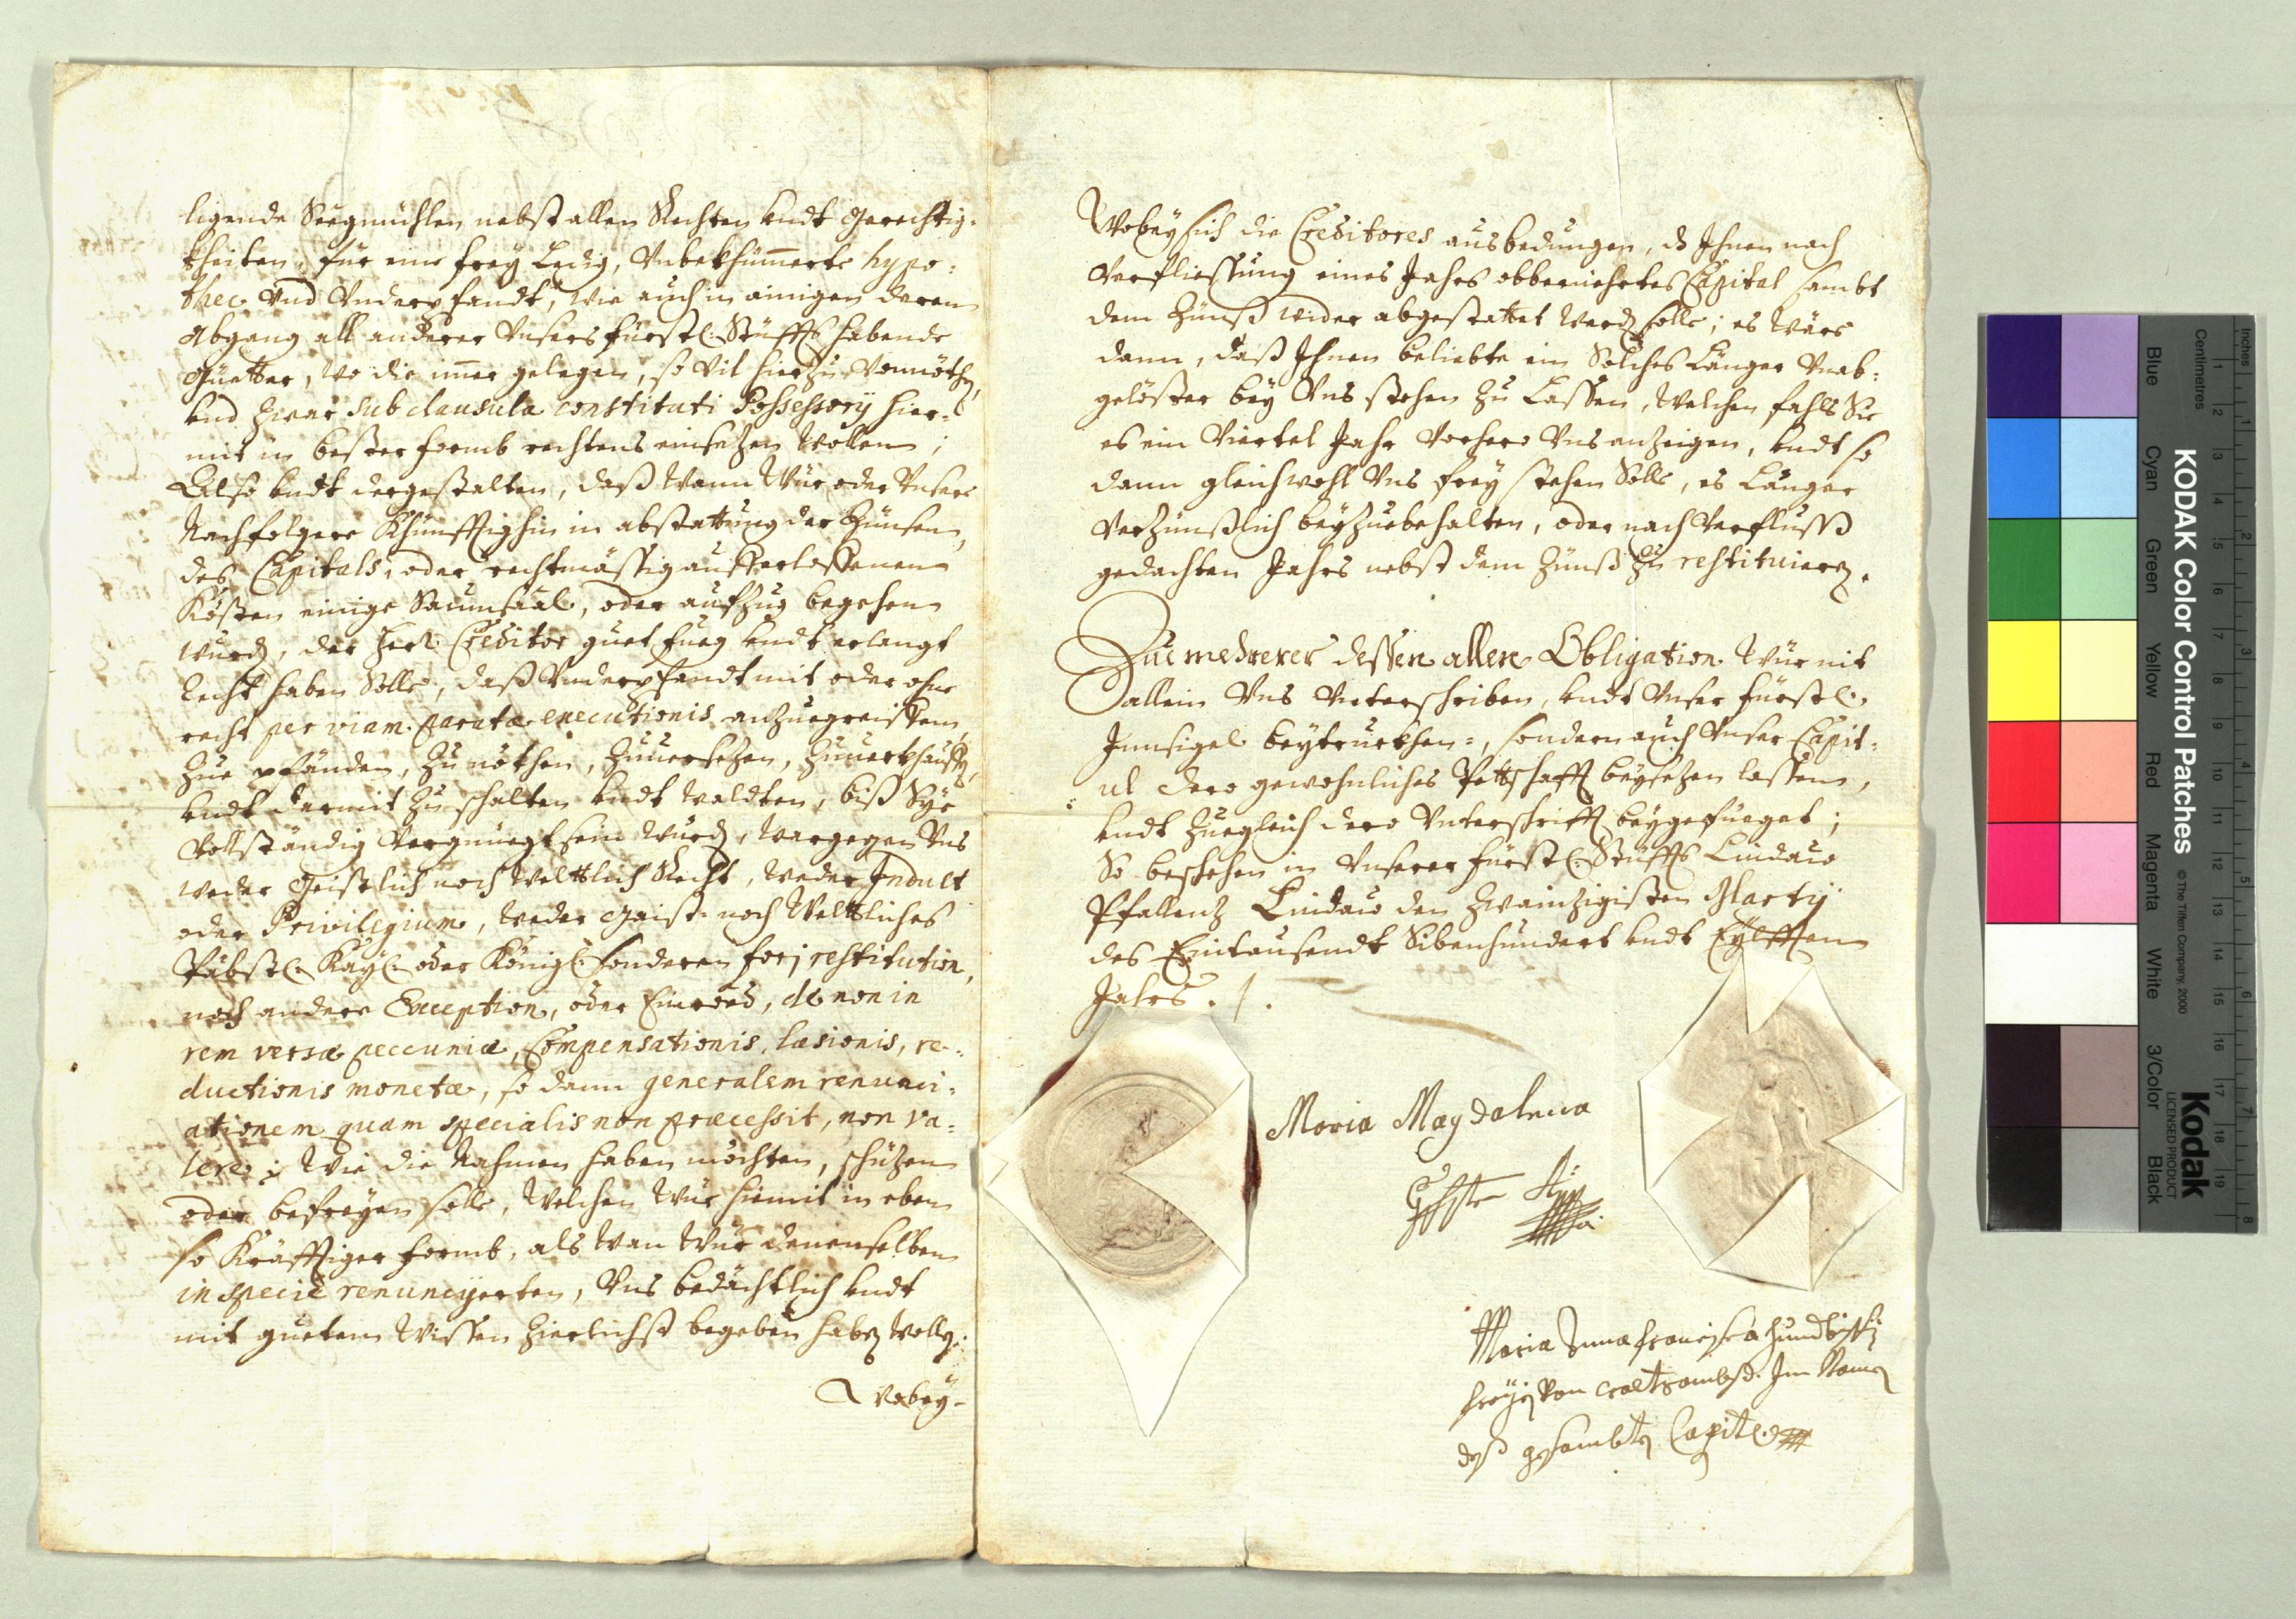 ligende Seegmühlen nebst allen Rechten undt Gerechtig-
kheiten, für eine frey Ledig, Unbekhümmerte hypo-
thec und Underpfandt, wie auch in ainigen deren
Abgang all anderer Unsers fürstl. Stüffts habende
Güetter, wo die immer gelegen, so vil hierzu Vonnöthen,
und zwar sub clausula constituti Possessory hier-
mit in bester formb rechtens einsetzen wollen;
Also undt dergestalten, daß wann Wür oder Unsere
Nachfolgere Khünfftighin in abstattung der Zünsen,
des Capitals, oder rechtmässig aufferloffenen
Kösten einige Saumsaal, oder aufzug begehen
wurden, der Herr Creditor guet fueg undt erlangt
Recht haben Solle, daß Underpfandt mit oder ohne
recht per viam paratæ executionis anzuegreiffen,
zue pfänden, zu nöthen, zuuersetzen, zuuerkhauffen,
undt darmit zu schalten undt waldten, biß Sye
vollständig Vergnüegt sein wurden, wargegen Uns
weder Geistlich noch Weltlich Recht, weder Indult
oder Privilegium, weder Geist- noch Weltliches
Päbstl. Kayl. oder Königl. sonderen forj restitution,
noch andere Exception, oder Einredt, de non in
rem versæ pecuniæ, Compensationis, læsionis, re-
ductionis monetæ, so dann generalem renunci-
ationem quam specialis non præcessit, non va-
lere; wie die Nahmen haben möchten, schützen
oder befreyen solle, welchen Wür hiemit in eben
so Kräfftiger formb, als wan Wür denenselben
in specie renuncyerten, Uns bedächtlich undt
mit guetem Wissen zierlichst begeben haben wollen.
Wobey-
Wobey sich die Creditores ausbedungen, ds Ihnen nach
Verfliessung eines Jahrs obberüehrtes Capital sambt
dem Zünß wider abgestattet werden solle; es wäre
dann, daß Ihnen beliebte ein Solches Länger Unab-
gelößter bey Uns stehen zu Lassen, welchen fahls Sie
es ein Viertel Jahr Vorhero Uns anzeigen, undt so
dann gleichwohl Uns frey stehen Solle, es Länger
Verzünßlich beyzuebehalten, oder nach Verflusß
gedachten Jahrs nebst dem Zünß zu restituieren.
Zue mehrerer dessen allen Obligation Wür nit
allein Uns Unterschriben, undt Unser fürstl.
Innsigel beytruckhen-, sondern auch Unser Capit-
ul dero gewohnliches Pettschafft beysetzen lassen,
undt zuegleich dero Unterschrifft beygefüeget;
So beschehen in Unserer Fürstl. Stüffts Lindaw
Pfallentz Lindaw den zwaintzigisten Martij
des Eintausendt Sibenhundert undt Eylfften
Jahrs ./.
Maria Magdalena
Maria Anna Francisca Hundbissin
freyin von Waltramßd. Im Namen
deß gesambten Capitel
KODAK Color Control Patches
© The Tiffen Company, 2000
Kodak
LICENSED PRODUCT
Blue Cyan Green Yellow Red Magenta White 3/Color Black
Inches 1 2 3 4 5 6 7 8
Centimetres 1 2 3 4 5 6 7 8 9 10 11 12 13 14 15 16 17 18 19